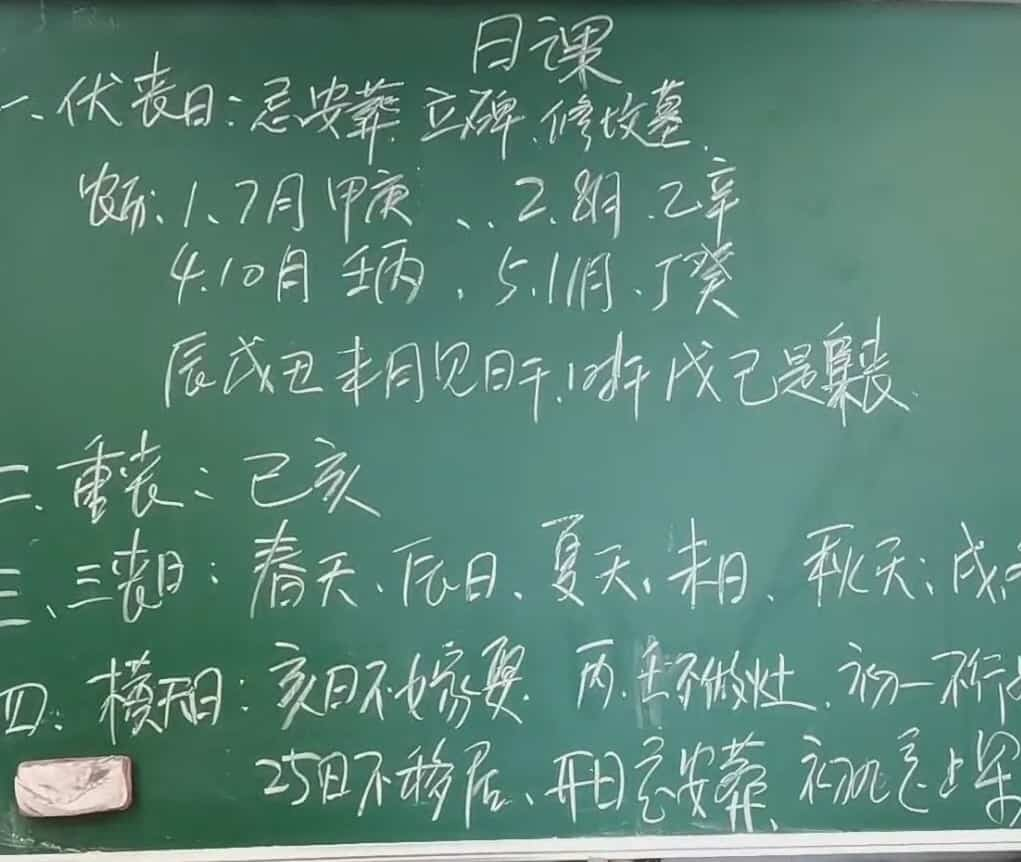 日课
一、伏丧日：忌安葬.立碑.修坟墓.
农历：1、7月甲庚、、2.8月.乙辛
4.10月壬丙、5.11月、丁癸
辰戌丑未月见日干、时干戊己是
二、重丧：己亥
三、三丧日：春天、辰日、夏天、未日、秋天、戌
四、横天日：亥日不嫁娶 丙.壬不做灶.初一不行
25日不移居、开日忌安葬、初九忌上梁